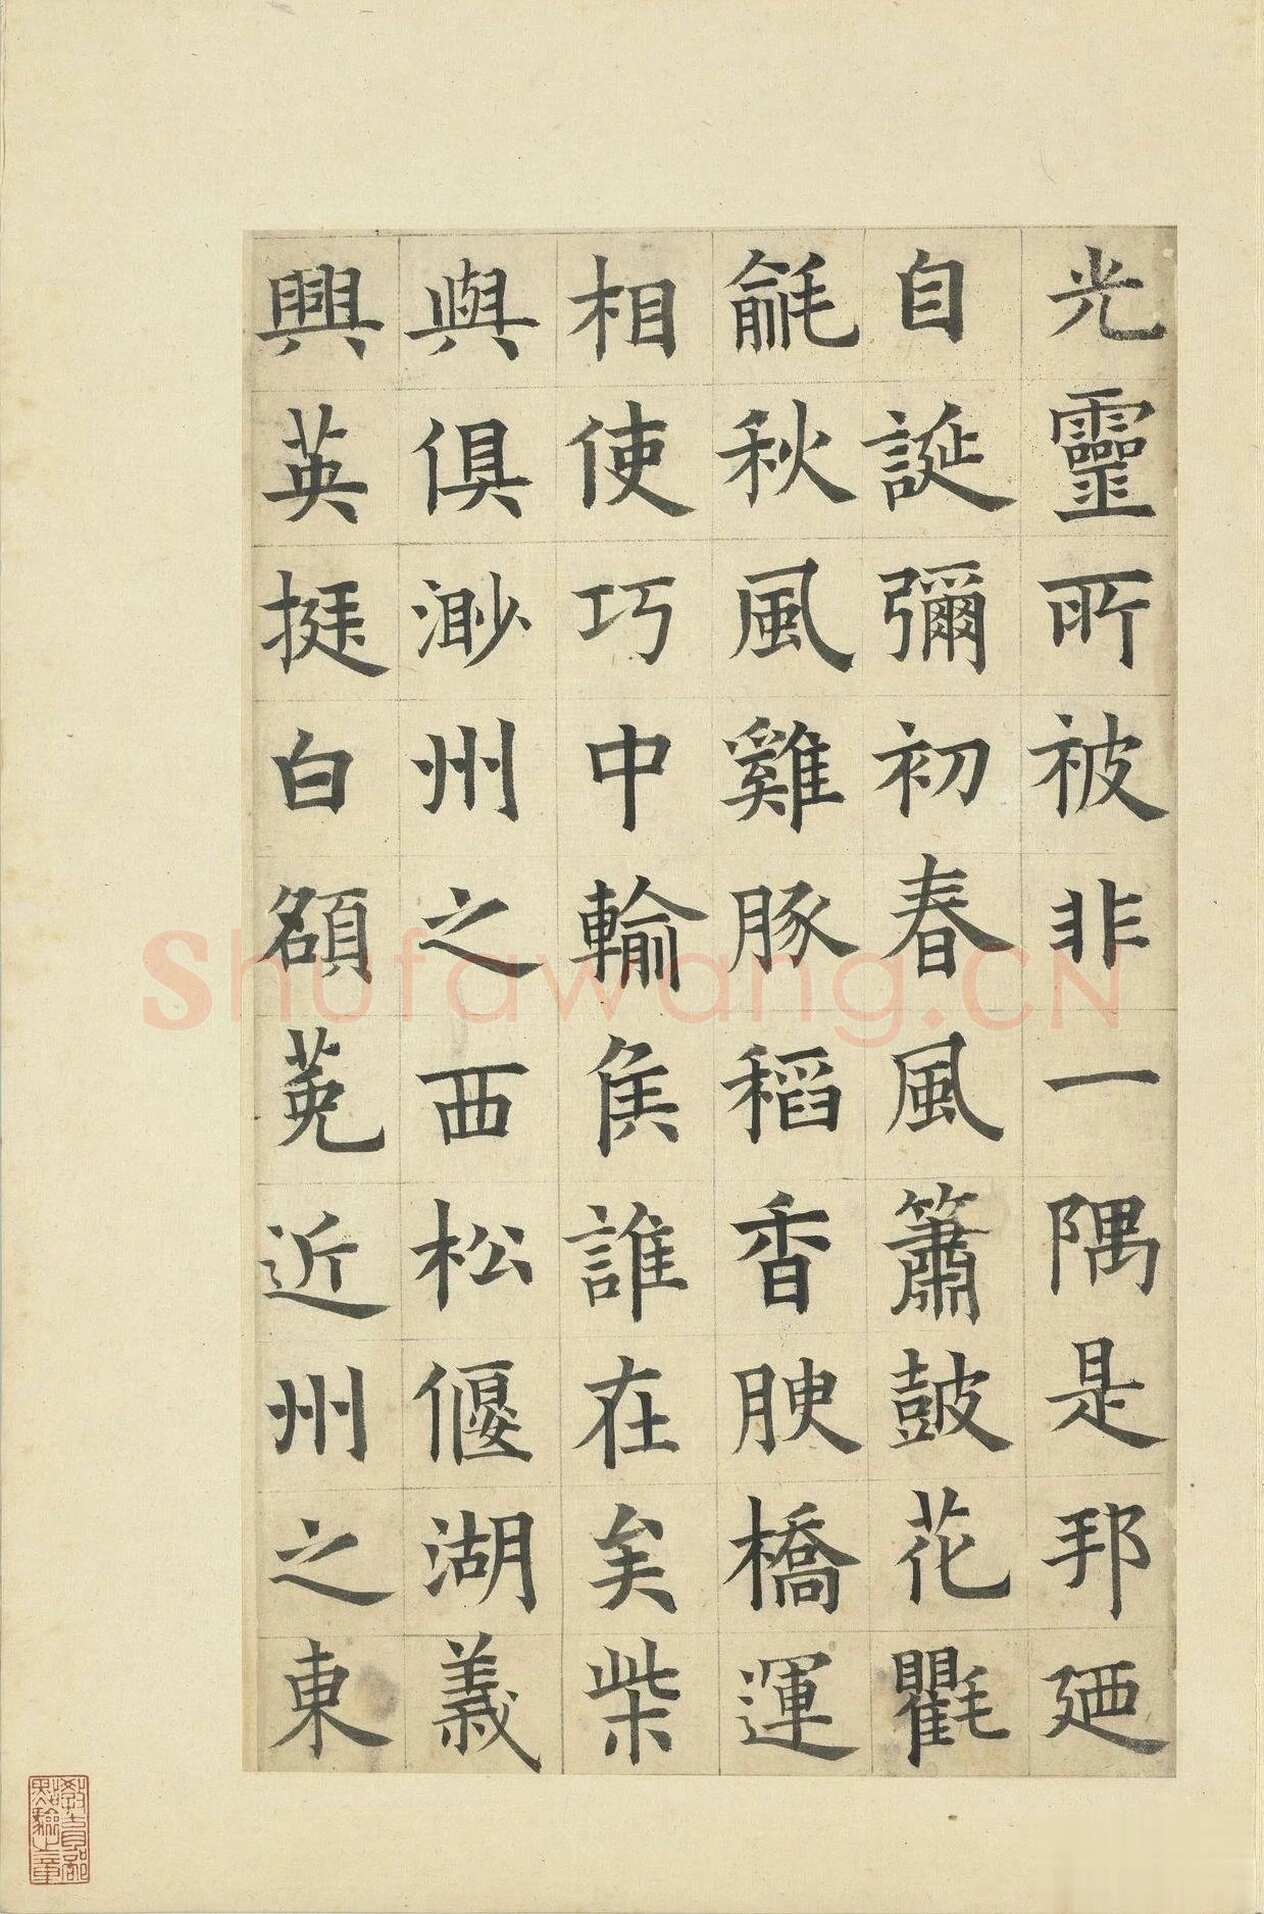 光靈所被非一隅是邦廼
自誕彌初春風簫鼓花氍
毹秋風雞豚稻香腴橋運
相使巧中輸矦誰在矣柴
與俱渺州之西松偃湖義
興英挺白額菟近州之東
Shufawang.CN
教育部點驗之章